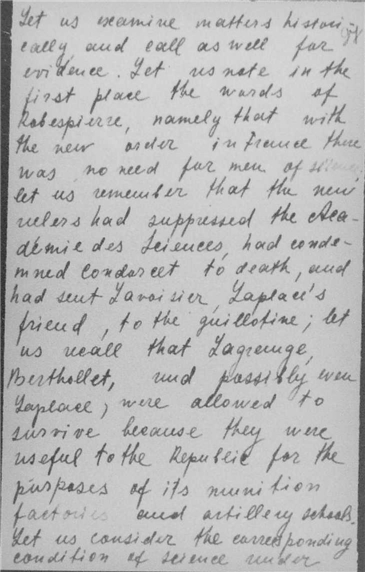 Let us examine matters histori-
cally, and call as well for
evidence. Let us note in the
first place the words of
Robespierre, namely that with
the new order in France there
was no need for men of science;
let us remember that the new
rulers had suppressed the Aca-
démie des Sciences, had conde-
mned Condorcet to death, and
had sent Lavoisier, Laplace's
friend, to the guillotine; let
us recall that Lagrange,
Berthollet, and possibly even
Laplace, were allowed to
survive because they were
useful to the Republic for the
purposes of its munition
factories and artillery schools.
Let us consider the corresponding
condition of science under